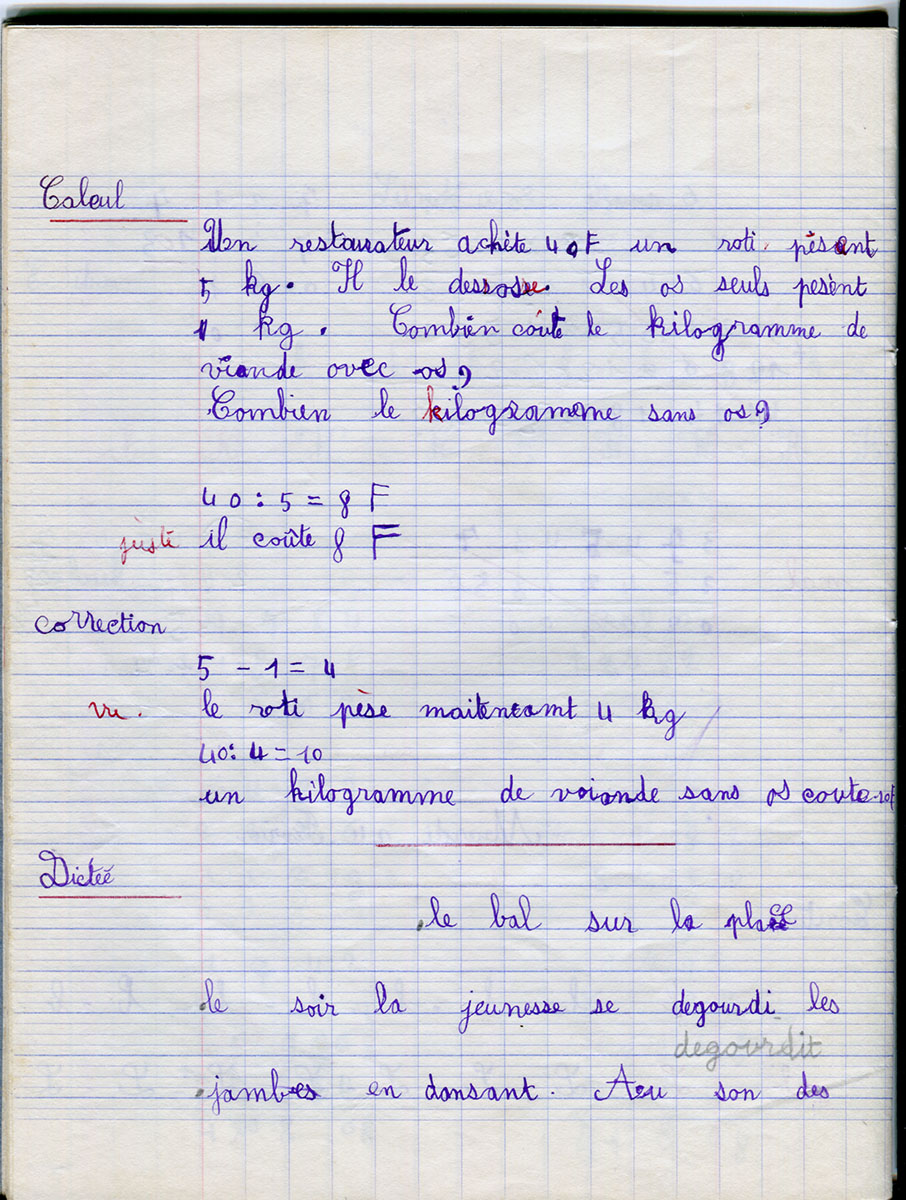 Calcul
Un restaurateur achète 40F un roti pèsant
5 kg. Il le dessosse. Les os seuls pesènt
1 kg. Combien coûte le kilogramme de
viande avec os?
Combien le kilogramme sans os?
40 : 5 = 8 F
juste il coûte 8 F
correction
5 - 1 = 4
vu. le roti pèse maitenant 4 kg
40 : 4 = 10
un kilogramme de voiande sans os coute 10F
Dictée
le bal sur la place
le soir la jeunesse se degourdi les
degourdit
jambes en dansant. Au son des